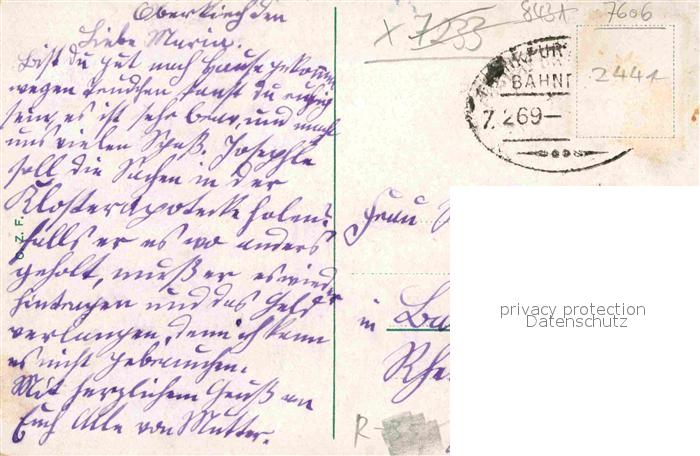 Oberkirch den
Liebe Maria.
Bist du gut nach Hause gekommen
wegen kanst du ruhig
sein, es ist sehr brav, und macht
uns vielen Spaß. Josephle
soll die Sachen in der
Klosterapotecke holen?
falls er es wo anders
geholt, muß er es wieder
hintragen und das Geld
verlangen, denn ich kann
es nicht gebrauchen.
Mit herzlichem Gruß an
Euch Alle von Mutter.
O. Z. F.
x 7233
8431
7606
2441
BAHNP
Z. 269—
Frau
in Ba
Rhe
R-
privacy protection
Datenschutz